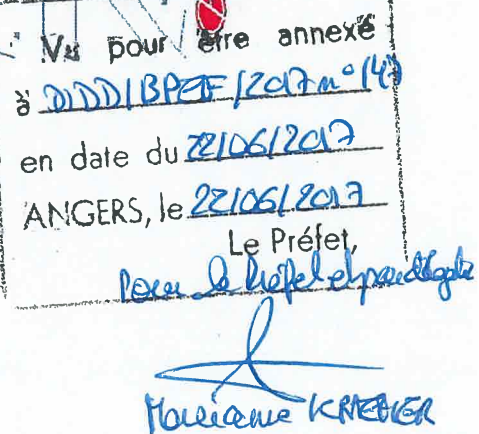 Vu pour être annexé
à DIDD/BPEF/2017 n° 147
en date du 22/06/2017
ANGERS, le 22/06/2017
Le Préfet,
Pour le Préfet et par délégation
Marianne